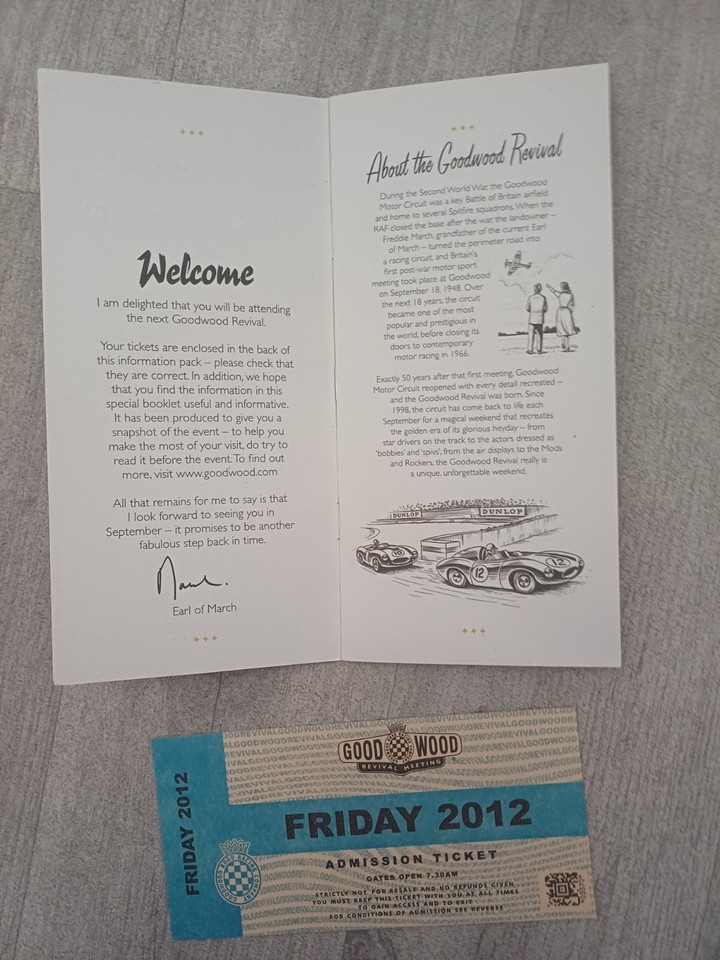 Welcome
I am delighted that you will be attending
the next Goodwood Revival.
Your tickets are enclosed in the back of
this information pack – please check that
they are correct. In addition, we hope
that you find the information in this
special booklet useful and informative.
It has been produced to give you a
snapshot of the event – to help you
make the most of your visit, do try to
read it before the event. To find out
more, visit www.goodwood.com
All that remains for me to say is that
I look forward to seeing you in
September – it promises to be another
fabulous step back in time.
March.
Earl of March
About the Goodwood Revival
During the Second World War, the Goodwood
Motor Circuit was a key Battle of Britain airfield
and home to several Spitfire squadrons. When the
RAF closed the base after the war, the landowner –
Freddie March, grandfather of the current Earl
of March – turned the perimeter road into
a racing circuit, and Britain's
first post-war motor sport
meeting took place at Goodwood
on September 18, 1948. Over
the next 18 years, the circuit
became one of the most
popular and prestigious in
the world, before closing its
doors to contemporary
motor racing in 1966.
Exactly 50 years after that first meeting, Goodwood
Motor Circuit reopened with every detail recreated –
and the Goodwood Revival was born. Since
1998, the circuit has come back to life each
September for a magical weekend that recreates
the golden era of its glorious heyday – from
star drivers on the track to the actors dressed as
'bobbies' and 'spivs', from the air displays to the Mods
and Rockers, the Goodwood Revival really is
a unique, unforgettable weekend.
DUNLOP
DUNLOP
10
12
12
FRIDAY 2012
GOODWOOD
REVIVAL MEETING
FRIDAY 2012
GOODWOOD ROAD RACING COMPANY
ADMISSION TICKET
GATES OPEN 7.30AM
STRICTLY NOT FOR RESALE AND NO REFUNDS GIVEN
YOU MUST KEEP THIS TICKET WITH YOU AT ALL TIMES
TO GAIN ACCESS AND TO EXIT
FOR CONDITIONS OF ADMISSION SEE REVERSE